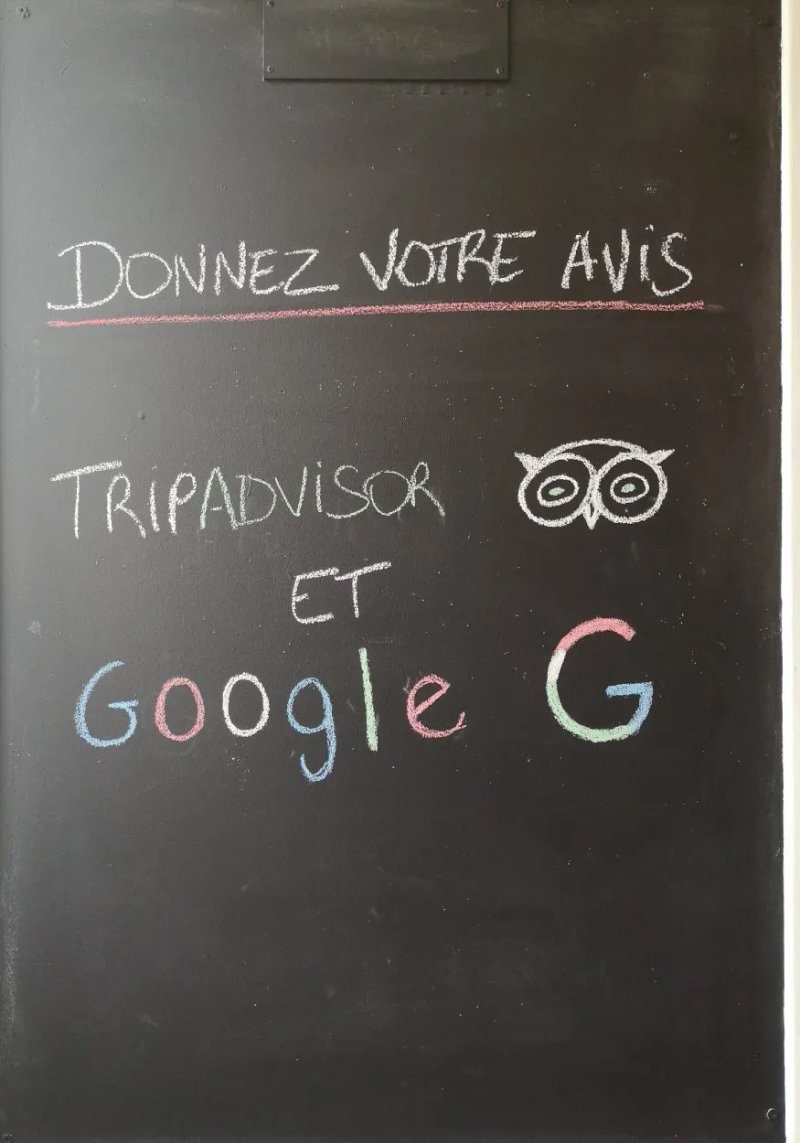 DONNEZ VOTRE AVIS
TRIPADVISOR
ET
Google G